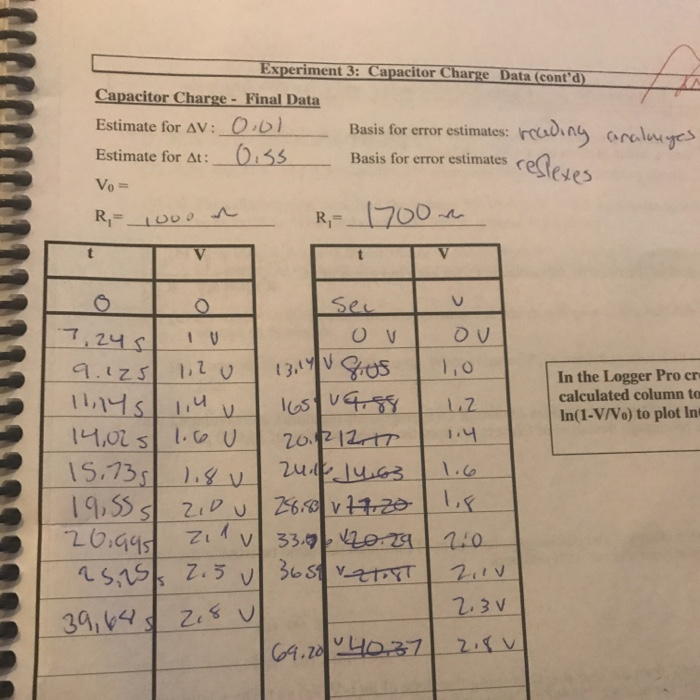 Experiment 3: Capacitor Charge Data (cont'd)
Capacitor Charge - Final Data
Estimate for ΔV: 0.01 Basis for error estimates: reading
Estimate for Δt: 0.5s Basis for error estimates reflexes
V₀ =
R₁= 1000 Ω R₁= 1700 Ω
t V t V
0 0 Sec V
7.24s 1 V 0 V 0 V
9.12s 1.2 V 13.14 V 8.05 1.0
11.14s 1.4 V 165 V 9.88 1.2
14.02s 1.6 V 12.17 1.4
15.73s 1.8 V 14.63 1.6
19.55s 2.0 V 28.83 V 17.20 1.8
20.99s 2.1 V 20.29 2.0
25.25s 2.5 V 36.59 V 21.81 2.1 V
39.64s 2.8 V 2.3 V
69.20 V 40.37 2.8 V
In the Logger Pro
calculated column to
ln(1-V/V₀) to plot